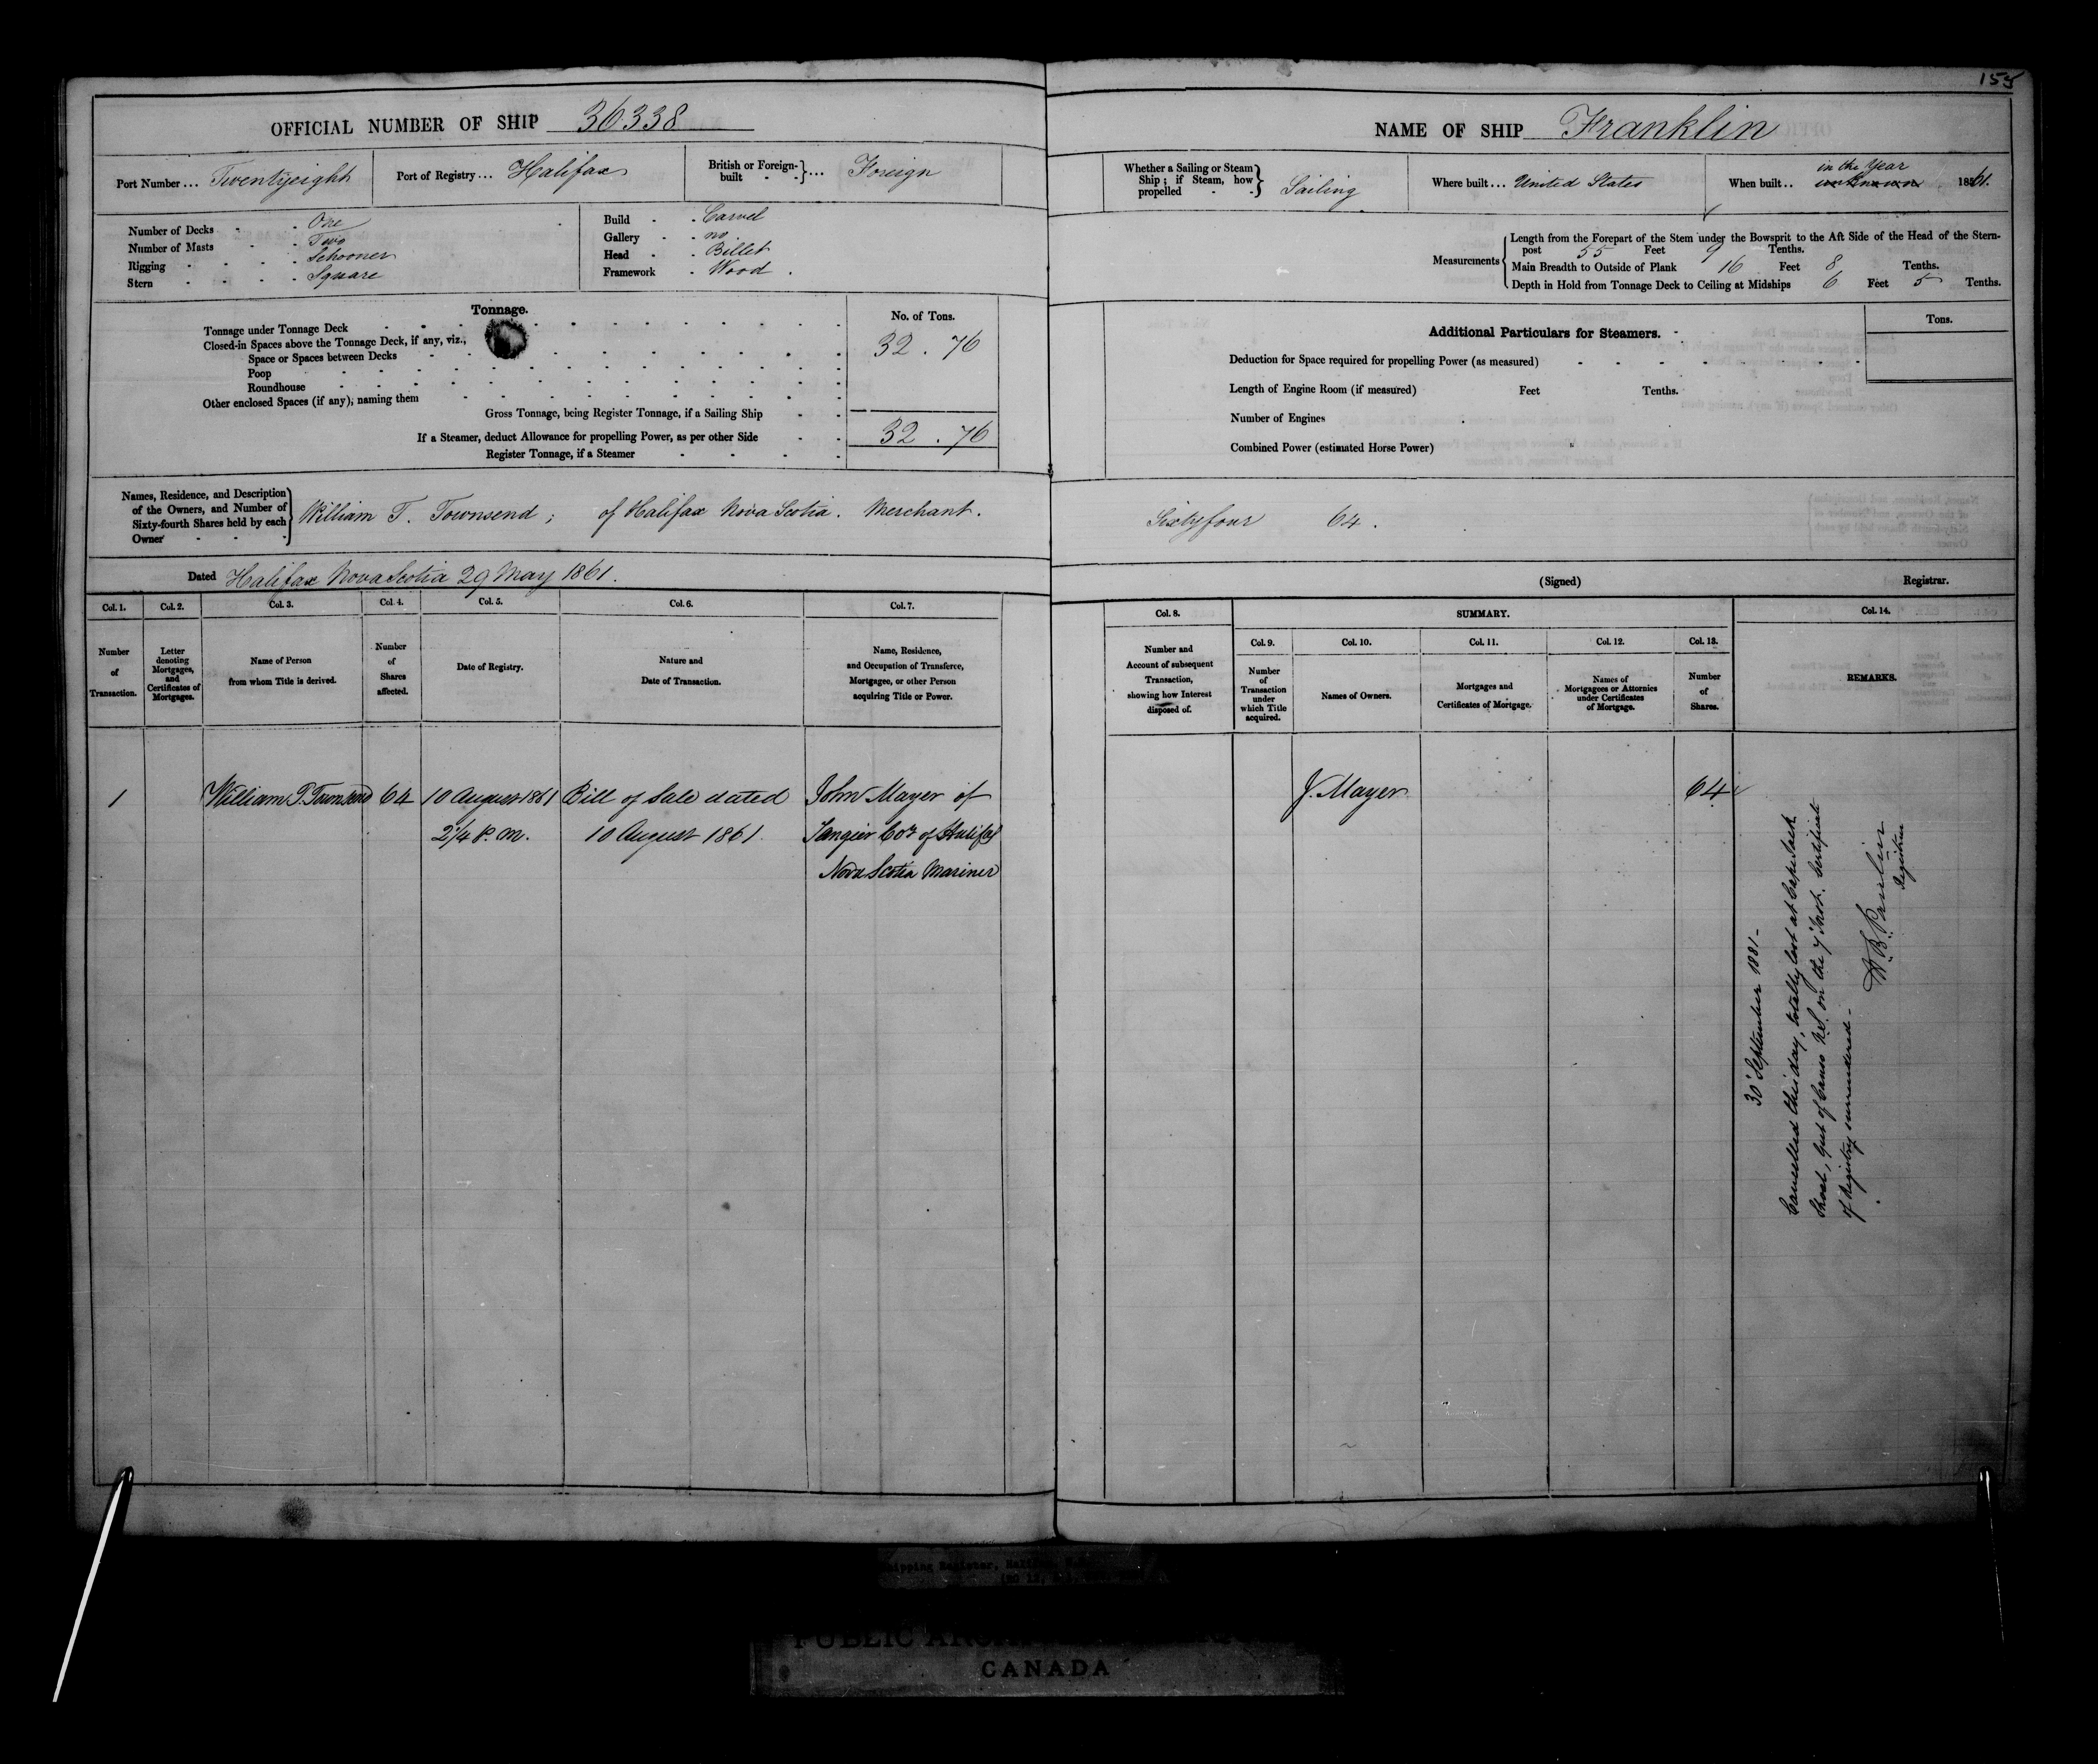 155
OFFICIAL NUMBER OF SHIP 36338
Port Number... Twentyeight
Port of Registry... Halifax
British or Foreign-built - -}... Foreign
Number of Decks - - One
Number of Masts - - Two
Rigging - - - - Schooner
Stern - - - - Square
Build - - Carvel
Gallery - - no
Head - - Billet
Framework - Wood.
Tonnage.
No. of Tons.
Tonnage under Tonnage Deck
32.76
Closed-in Spaces above the Tonnage Deck, if any, viz.,
Space or Spaces between Decks
Poop
Roundhouse
Other enclosed Spaces (if any), naming them
Gross Tonnage, being Register Tonnage, if a Sailing Ship
If a Steamer, deduct Allowance for propelling Power, as per other Side
32.76
Register Tonnage, if a Steamer
Names, Residence, and Description
of the Owners, and Number of
Sixty-fourth Shares held by each
Owner - - -
William T. Townsend; of Halifax Nova Scotia. Merchant.
Dated Halifax Nova Scotia 29 May 1861.
Col. 1. Col. 2. Col. 3. Col. 4. Col. 5. Col. 6. Col. 7.
Number of Transaction.
Letter denoting Mortgages, and Certificates of Mortgages.
Name of Person from whom Title is derived.
Number of Shares affected.
Date of Registry.
Nature and Date of Transaction.
Name, Residence, and Occupation of Transferee, Mortgagee, or other Person acquiring Title or Power.
1 William T. Townsend 64 10 August 1861 Bill of Sale dated John Mayer of
2 1/4 P.M. 10 August 1861. Tangier Coy of Halifax
Nova Scotia Mariner
NAME OF SHIP Franklin
Whether a Sailing or Steam Ship; if Steam, how propelled - -} Sailing
Where built... United States
in the Year
When built.. unknown 1861.
Measurements
Length from the Forepart of the Stem under the Bowsprit to the Aft Side of the Head of the Stern-
post 55 Feet 9 Tenths.
Main Breadth to Outside of Plank 16 Feet 8 Tenths.
Depth in Hold from Tonnage Deck to Ceiling at Midships 6 Feet 5 Tenths.
Additional Particulars for Steamers.
Tons.
Deduction for Space required for propelling Power (as measured)
Length of Engine Room (if measured) Feet Tenths.
Number of Engines
Combined Power (estimated Horse Power)
Sixtyfour 64.
(Signed) Registrar.
Col. 8. SUMMARY. Col. 14.
Col. 9. Col. 10. Col. 11. Col. 12. Col. 13.
Number and Account of subsequent Transaction, showing how Interest disposed of.
Number of Transaction under which Title acquired.
Names of Owners.
Mortgages and Certificates of Mortgage.
Names of Mortgagees or Attornies under Certificates of Mortgage.
Number of Shares.
REMARKS.
J. Mayer 64
30 September 1881-
Cancelled this day, totally lost at Cape Jack
Shoal, Gut of Canso N.S. on the 7 Inst. Certificate
of Registry surrendered-
Registrar
Shipping Register,
CANADA